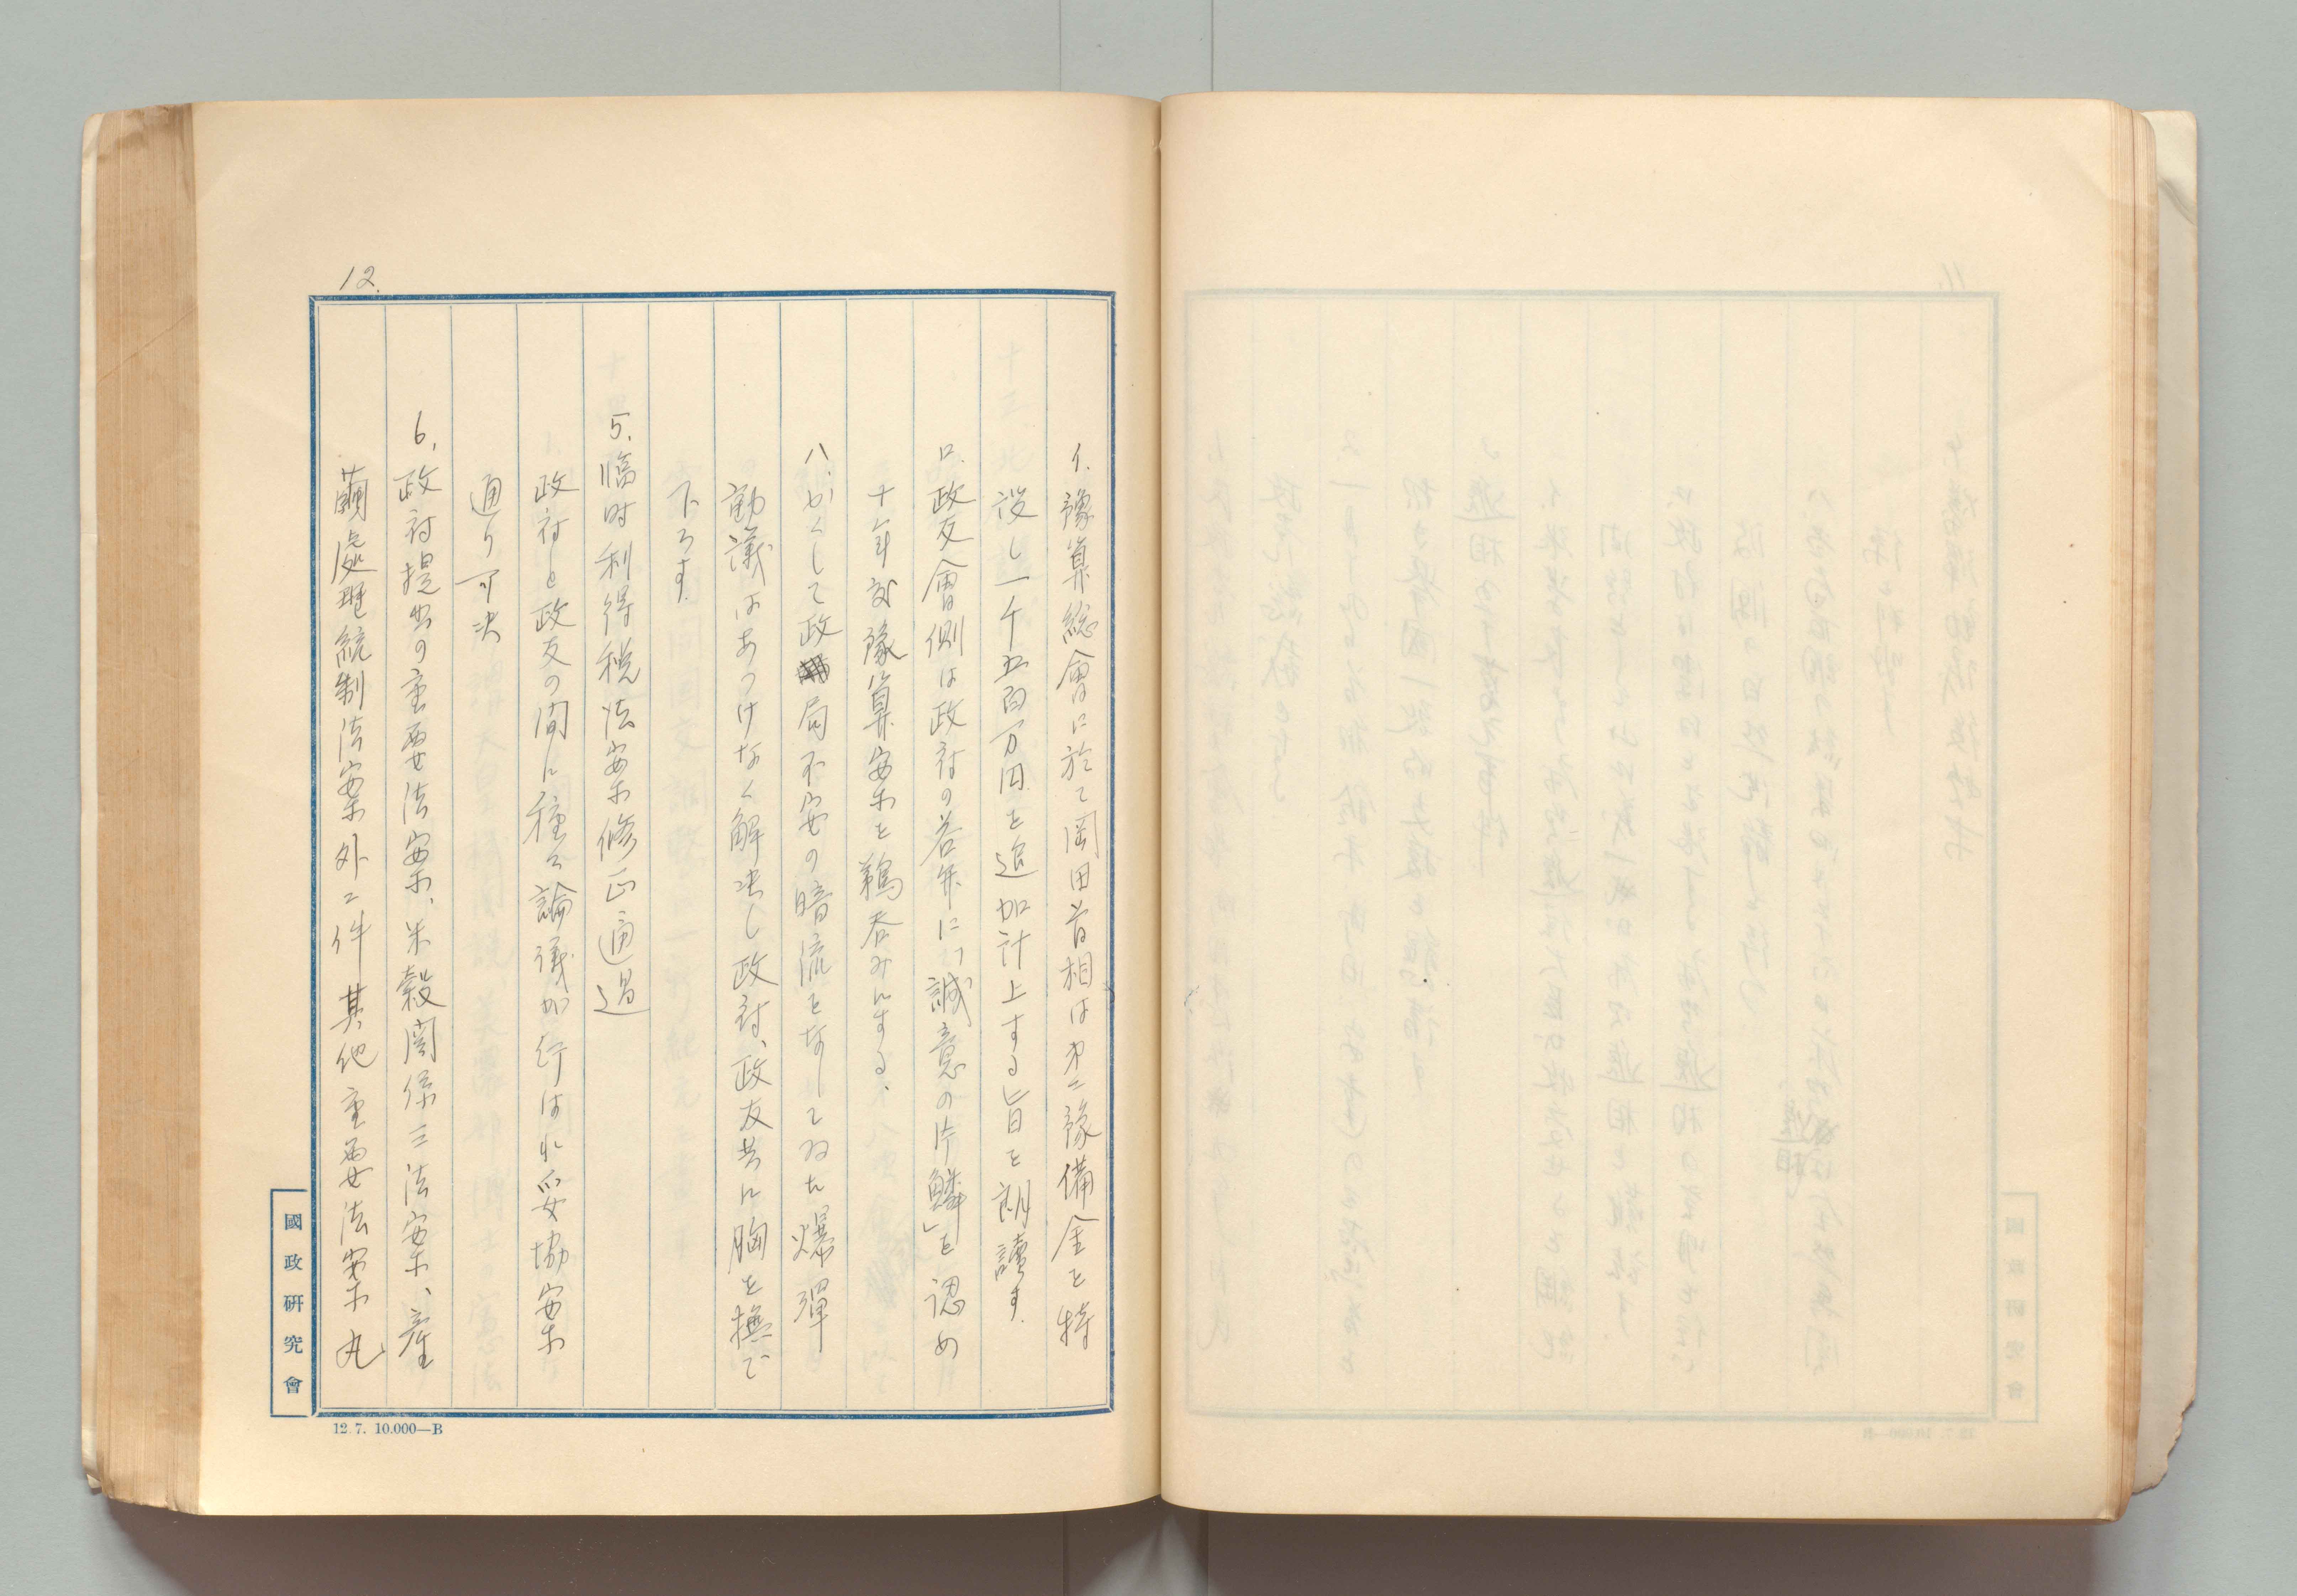 12.
イ.豫算総會に於て岡田首相は才二豫備金を特
設し一千五百万円を追加計上する旨を朗讀す.
ロ.政友會側は政府の答弁に、「誠意の片鱗」を認め
十年度豫算案を鵜呑みにする、
ハ.かくして政局不安の暗流をなしてゐた爆彈
動議はあつけなく解決し政府、政友共に胸を撫で
下ろす.
5.臨時利得税法案修正通過
政府と政友の間に種々論議が行はれ妥協案
通り可決
6.政府提出の重要法案、米穀関係三法案、産
繭處理統制法案外二件其他重要法案丸
國政研究會
12.7. 10.000—B